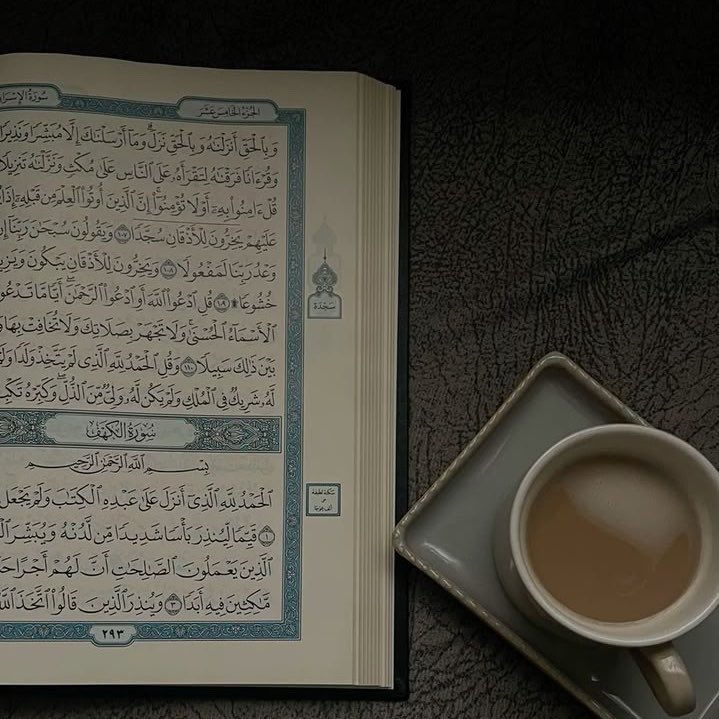 سُورَةُ الإِسْرَاء
الجُزْءُ الخَامِسَ عَشَرَ
وَبِالْحَقِّ أَنزَلْنَاهُ وَبِالْحَقِّ نَزَلَ ۗ وَمَا أَرْسَلْنَاكَ إِلَّا مُبَشِّرًا وَنَذِيرًا
وَقُرْءَانًا فَرَقْنَاهُ لِتَقْرَأَهُۥ عَلَى النَّاسِ عَلَىٰ مُكْثٍ وَنَزَّلْنَاهُ تَنزِيلًا
قُلْ ءَامِنُوا بِهِۦٓ أَوْ لَا تُؤْمِنُوٓا ۚ إِنَّ الَّذِينَ أُوتُوا الْعِلْمَ مِن قَبْلِهِۦٓ إِذَا
عَلَيْهِمْ يَخِرُّونَ لِلْأَذْقَانِ سُجَّدًا ١٠٧ وَيَقُولُونَ سُبْحَانَ رَبِّنَآ إِن
وَعْدُ رَبِّنَا لَمَفْعُولًا ١٠٨ وَيَخِرُّونَ لِلْأَذْقَانِ يَبْكُونَ وَيَزِيدُ
خُشُوعًا ۩ ١٠٩ قُلِ ادْعُوا اللَّهَ أَوِ ادْعُوا الرَّحْمَٰنَ ۖ أَيًّا مَّا تَدْعُوا
سَجْدَة
الْأَسْمَآءُ الْحُسْنَىٰ ۚ وَلَا تَجْهَرْ بِصَلَاتِكَ وَلَا تُخَافِتْ بِهَا وَ
بَيْنَ ذَٰلِكَ سَبِيلًا ١١٠ وَقُلِ الْحَمْدُ لِلَّهِ الَّذِي لَمْ يَتَّخِذْ وَلَدًا وَلَمْ
لَّهُۥ شَرِيكٌ فِي الْمُلْكِ وَلَمْ يَكُن لَّهُۥ وَلِيٌّ مِّنَ الذُّلِّ ۖ وَكَبِّرْهُ تَكْبِ
سُورَةُ الكَهْفِ
بِسْمِ اللَّهِ الرَّحْمَٰنِ الرَّحِيمِ
الْحَمْدُ لِلَّهِ الَّذِيٓ أَنزَلَ عَلَىٰ عَبْدِهِ الْكِتَابَ وَلَمْ يَجْعَل
سَكتة لطيفة
على
ألف عِوَجا
١ قَيِّمًا لِّيُنذِرَ بَأْسًا شَدِيدًا مِّن لَّدُنْهُ وَيُبَشِّرَ الْ
الَّذِينَ يَعْمَلُونَ الصَّالِحَاتِ أَنَّ لَهُمْ أَجْرًا حَسَ
مَّاكِثِينَ فِيهِ أَبَدًا ٣ وَيُنذِرَ الَّذِينَ قَالُوا اتَّخَذَ اللَّهُ
٢٩٣